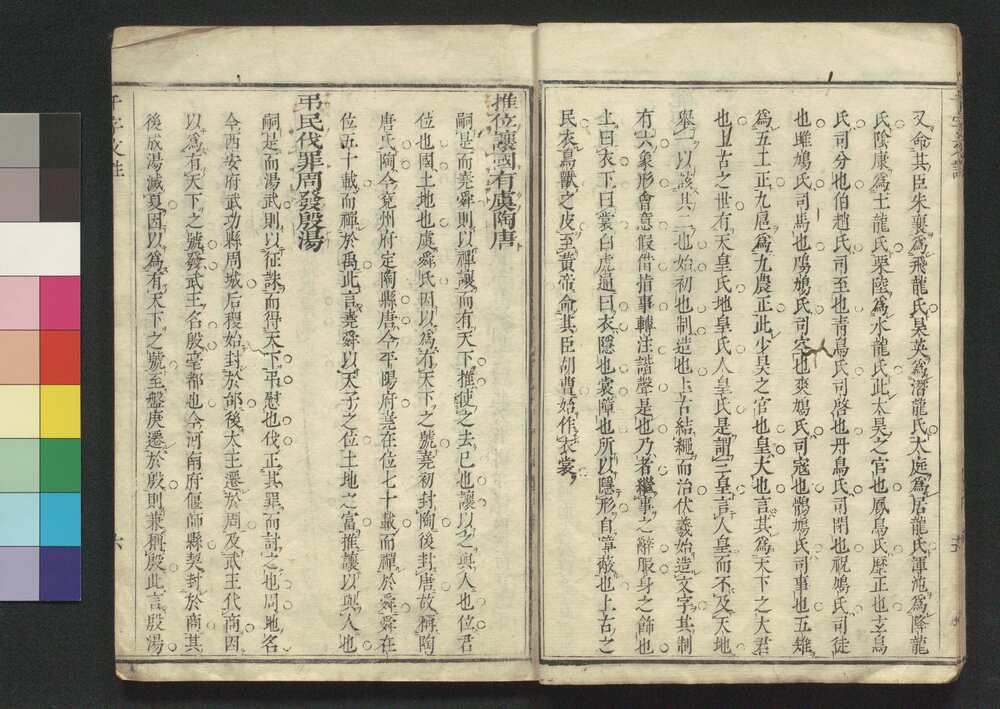 又命其臣朱襄爲飛龍氏昊英爲潛龍氏大庭爲居龍氏渾沌爲降龍
氏陰康爲土龍氏栗陸爲水龍氏此太昊之官也鳳鳥氏歷正也玄鳥
氏司分也伯趙氏司至也青鳥氏司啓也丹鳥氏司閉也祝鳩氏司徒
也雎鳩氏司馬也鳲鳩氏司空也爽鳩氏司寇也鶻鳩氏司事也五雉
爲五工正九扈爲九農正此少昊之官也皇大也言其爲天下之大君
也上古之世有天皇氏地皇氏人皇氏是謂三皇言人皇而不及天地
舉一以該其二也始初也制造也上古結繩而治伏羲始造文字其制
有六象形會意假借指事轉注諧聲是也乃者繼事之辭服身之飾也
上曰衣下曰裳白虎通曰衣隱也裳障也所以隱形自障蔽也上古之
民衣鳥獸之皮至黃帝命其臣胡曹始作衣裳
推位讓國有虞陶唐
嗣是而堯舜則以禪讓而有天下推使之去已也讓以之與人也位君
位也國土地也虞舜氏因以爲有天下之號堯初封陶後封唐故稱陶
唐氏陶今兗州府定陶縣唐今平陽府堯在位七十載而禪於舜舜在
位五十載而禪於禹此言堯舜以天子之位土地之富推讓以與人也
弔民伐罪周發殷湯
嗣是而湯武則以征誅而得天下弔慰也伐正其罪而討之也周地名
今西安府武功縣周城后稷始封於邰後大王遷於周及武王代商因
以爲有天下之號發武王名殷亳都也今河南府偃師縣契封於商其
後成湯滅夏因以爲有天下之號至盤庚遷於殷則兼稱殷此言殷湯
六